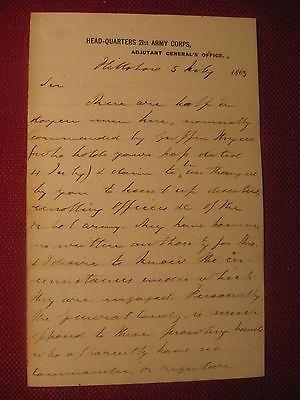 HEAD-QUARTERS 21st ARMY CORPS,
ADJUTANT GENERAL'S OFFICE.
Hillsboro 5 July 1863
Sir
There are half a
dozen men here, nominally
commanded by
(who holds yours pass dated
4 July) & claim to be authorized
by you to hunt up deserters,
enrolling officers &c of the
rebel army. They have however
no written authority for this.
& I desire to know the cir-
cumstances under which
they are engaged. Personally
the general
opposed to these prowling bands
who apparently have no
commander, or regular